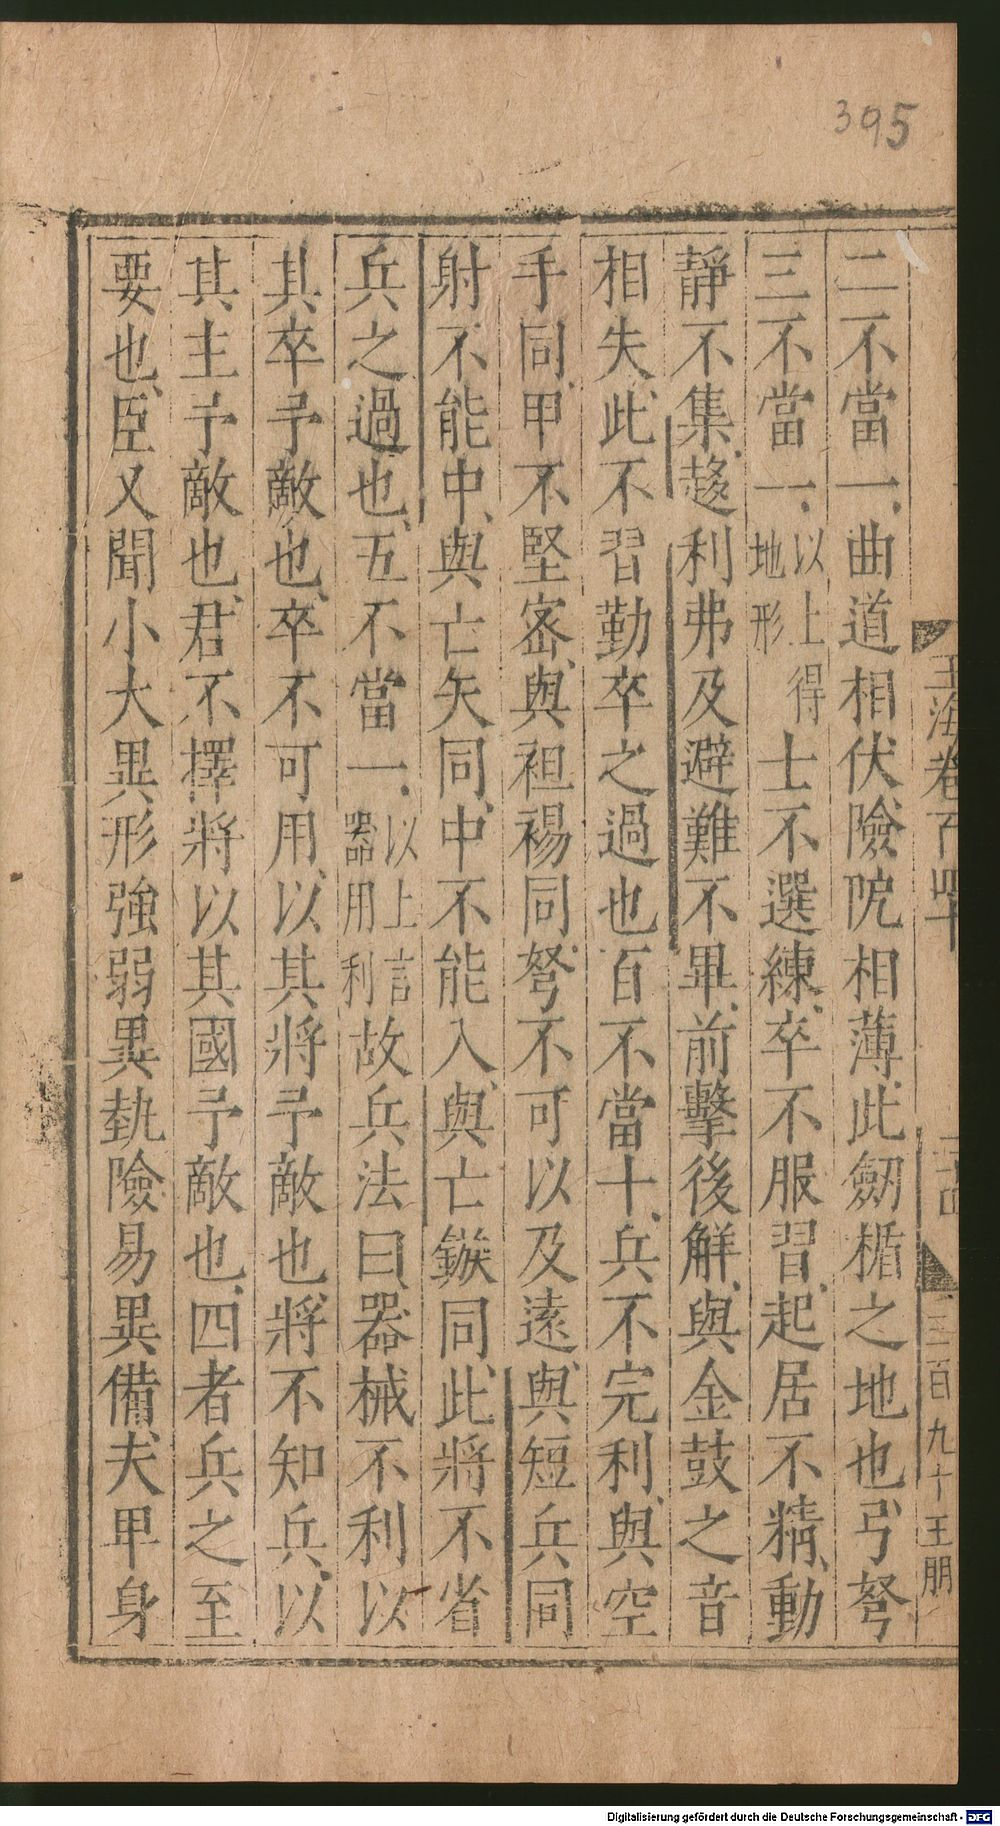 395
玉海卷百四十
三百九十 王朋
二不當一曲道相伏險阸相薄此劒楯之地也弓弩
三不當一以上得地形士不選練卒不服習起居不精動
靜不集趍利弗及避難不畢前擊後解與金鼓之音
相失此不習勤卒之過也百不當十兵不完利與空
手同甲不堅密與袒裼同弩不可以及遠與短兵同
射不能中與亡矢同中不能入與亡鏃同此將不省
兵之過也五不當一以上言器用利故兵法曰器械不利以
其卒予敵也卒不可用以其將予敵也將不知兵以
其主予敵也君不擇將以其國予敵也四者兵之至
要也臣又聞小大異形強弱異埶險易異備夫卑身
Digitalisierung gefördert durch die Deutsche Forschungsgemeinschaft - DFG